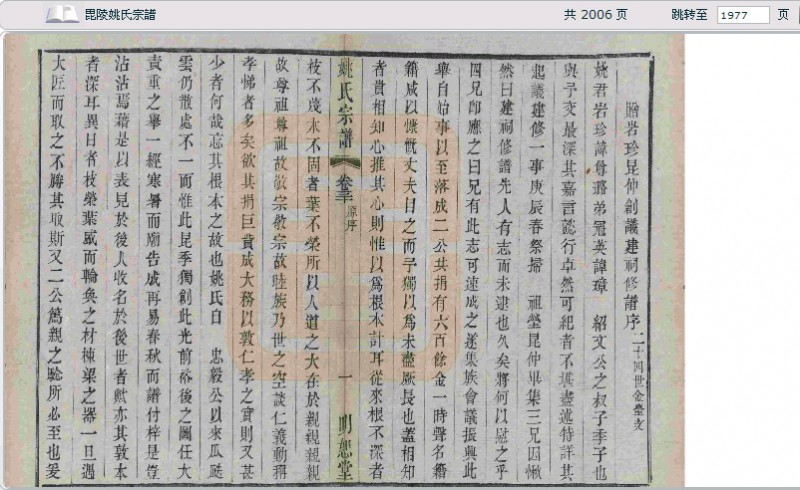 毘陵姚氏宗譜
共 2006 页
跳转至 1977 页
贈岩珍昆仲創議建祠修譜序 二十四世金臺支
姚君岩珍諱尊璐弟冠英諱璋 紹文公之叔子季子也
與予交最深其嘉言懿行卓然可紀者不堪盡述特詳其
起議建修一事庚辰春祭掃 祖塋昆仲畢集三兄因愀
然曰建祠修譜先人有志而未逮也久矣將何以慰之乎
四兄即應之曰兄有此志可速成之遂集族會議振興此
舉自始事以至落成二公共捐有六百餘金一時聲名籍
籍咸以慷慨丈夫目之而予獨以為未盡厥長也蓋相知
者貴相知心推其心則惟以爲根本計耳從來根不深者
姚氏宗譜 卷三 原序 一 明恕堂
枝不茂本不固者葉不榮所以人道之大在於親親親親
故尊祖尊祖故敬宗敬宗故睦族乃世之空談仁義動稱
孝悌者多矣欲其捐巨貲成大務以敦仁孝之實則又甚
少者何哉忘其根本之故也姚氏自 忠毅公以來瓜瓞
雲仍散處不一而惟此昆季獨創此光前裕後之圖任大
責重之舉一經寒暑而廟告成再易春秋而譜付梓是豈
沾沾焉藉是以表見於後人收名於後世者歟亦其敦本
者深耳異日者枝榮葉盛而輪奐之材棟梁之器一旦遇
大匠而取之不勝其取斯又二公篤親之驗所必至也爰